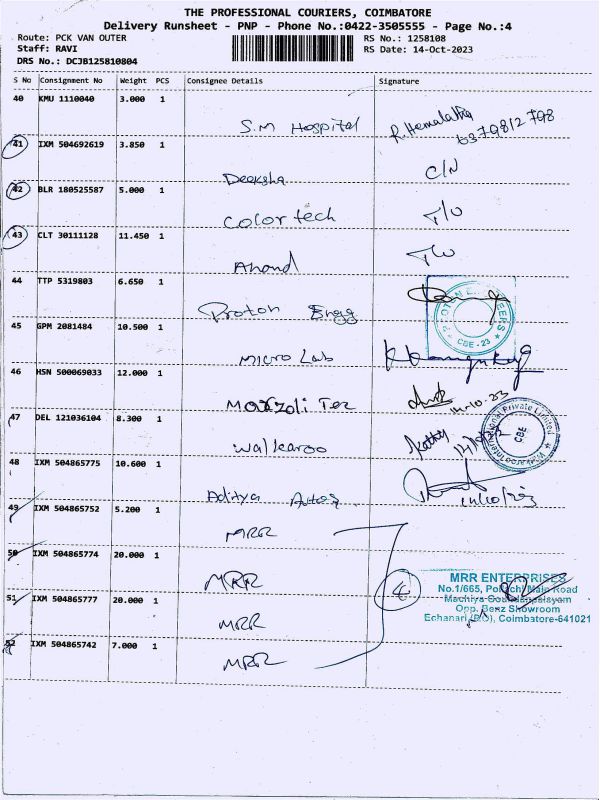 THE PROFESSIONAL COURIERS, COIMBATORE
Delivery Runsheet - PNP - Phone No.:0422-3505555 - Page No.:4
Route: PCK VAN OUTER RS No.: 1258108
Staff: RAVI RS Date: 14-Oct-2023
DRS No.: DCJB125810804
S No Consignment No Weight PCS Consignee Details Signature
40 KMU 1110040 3.000 1
S.M Hospital R.Hemalatha 6379812798
41 IXM 504692619 3.850 1
Deeksha C/N
42 BLR 180525587 5.000 1
Color tech T/U
43 CLT 30111128 11.450 1
Anand T/U
44 TTP 5319803 6.650 1
Proton Engg
CBE - 23
45 GPM 2081484 10.500 1
Micro Lab
46 HSN 500069033 12.000 1
14-10-23
47 DEL 121036104 8.300 1
Walkaroo Kathy
Walkaroo International Private Limited
CBE
48 IXM 504865775 10.600 1
Aditya Autos 14/10/23
49 IXM 504865752 5.200 1
MRR
50 IXM 504865774 20.000 1
MRR 4
MRR ENTERPRISES
No.1/665, Pollachi Main Road
51 IXM 504865777 20.000 1
Machiya Goundanpalayam
Opp. Benz Showroom
MRR
Echanari (P.O), Coimbatore-641021
52 IXM 504865742 7.000 1
MRR